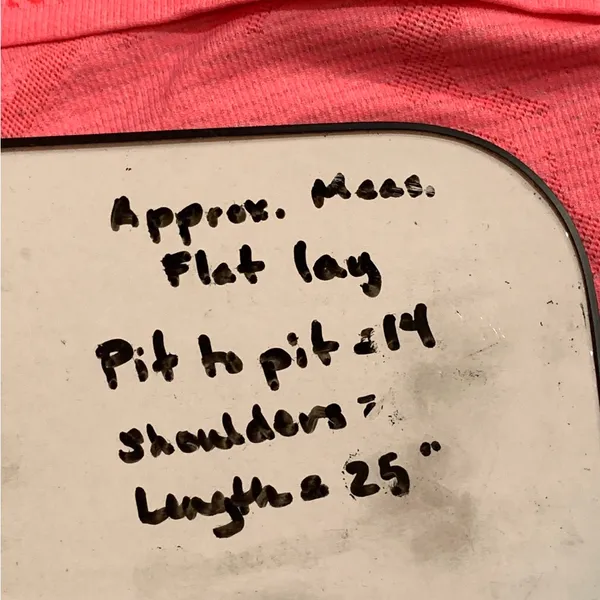 Approx. Meas.
Flat lay
Pit to pit = 14
Shoulders =
Length = 25"